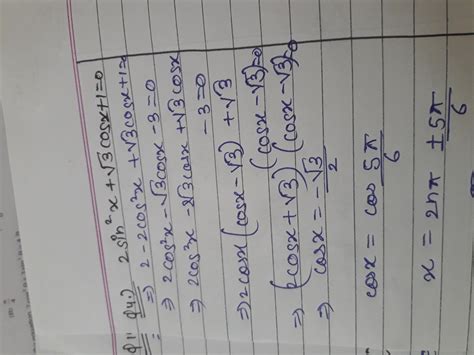 Q1: Q4.) 2sin²x + √3cosx + 1 = 0
⇒ 2 - 2cos²x + √3cosx + 1 =
⇒ 2cos²x - √3cosx - 3 = 0
⇒ 2cos²x - 2√3cosx + √3cosx
- 3 = 0
⇒ 2cosx (cosx - √3) + √3
(cosx - √3) = 0
⇒ (2cosx + √3) (cosx - √3) = 0
⇒ cosx = -√3/2
cosx = cos 5π/6
x = 2nπ ± 5π/6